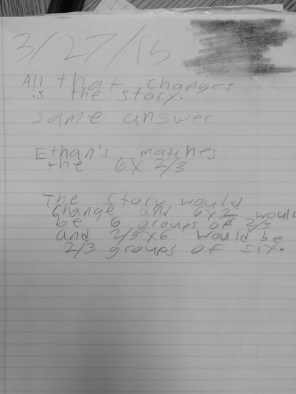 3/27/15
All that changes
is the story.
same answer
Ethan's matches
the 6x 2/3
The Story would
change and 6x2/3 would
be 6 groups of 2/3
and 2/3x6 would be
2/3 groups of six.